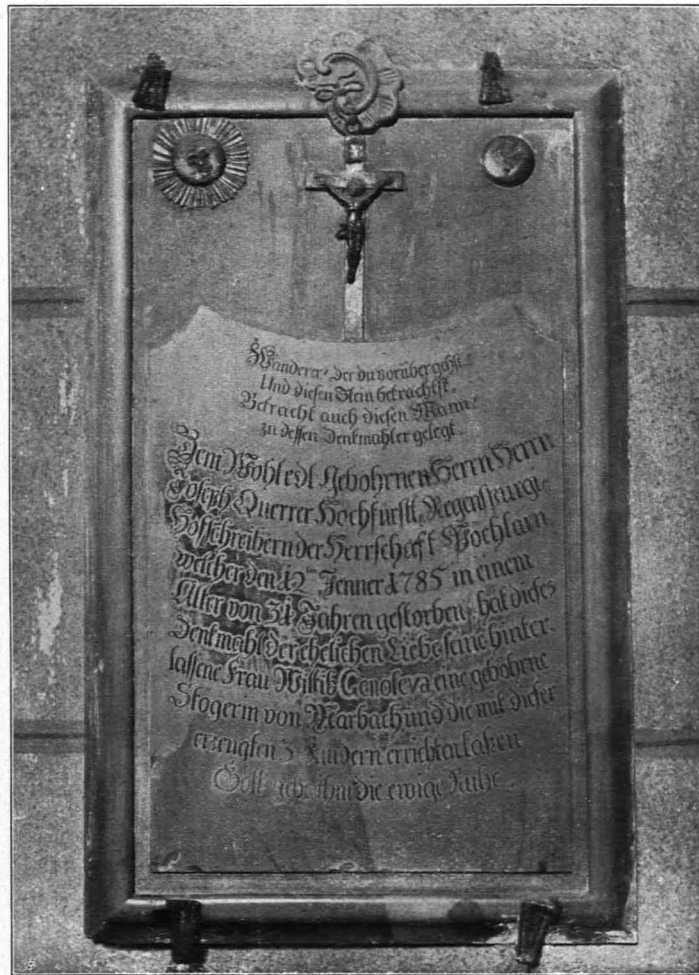 Wanderer der du vorübergehst
Und diesen Stein betrachtst.
Betracht auch diesen Mann:
zu dessen Denkmahl er gelegt.
Dem Wohledl Gebohrnen Herrn Herrn
Joseph Querrer Hochfürstl. Regenspurgi:
Hofschreibern der Herrschaft Pöchlarn,
welcher den 12ten Jenner 1785 in einem
Alter von 34 Jahren gestorben, hat dieses
Denkmahl der ehelichen Liebe seine hinter-
lassene Frau Wittib Genofeva eine gebohrne
Stogerin von Marbach, und die mit dieser
erzeugten 3 Kindern errichten laßen
Gott gebe ihm die ewige Ruhe.